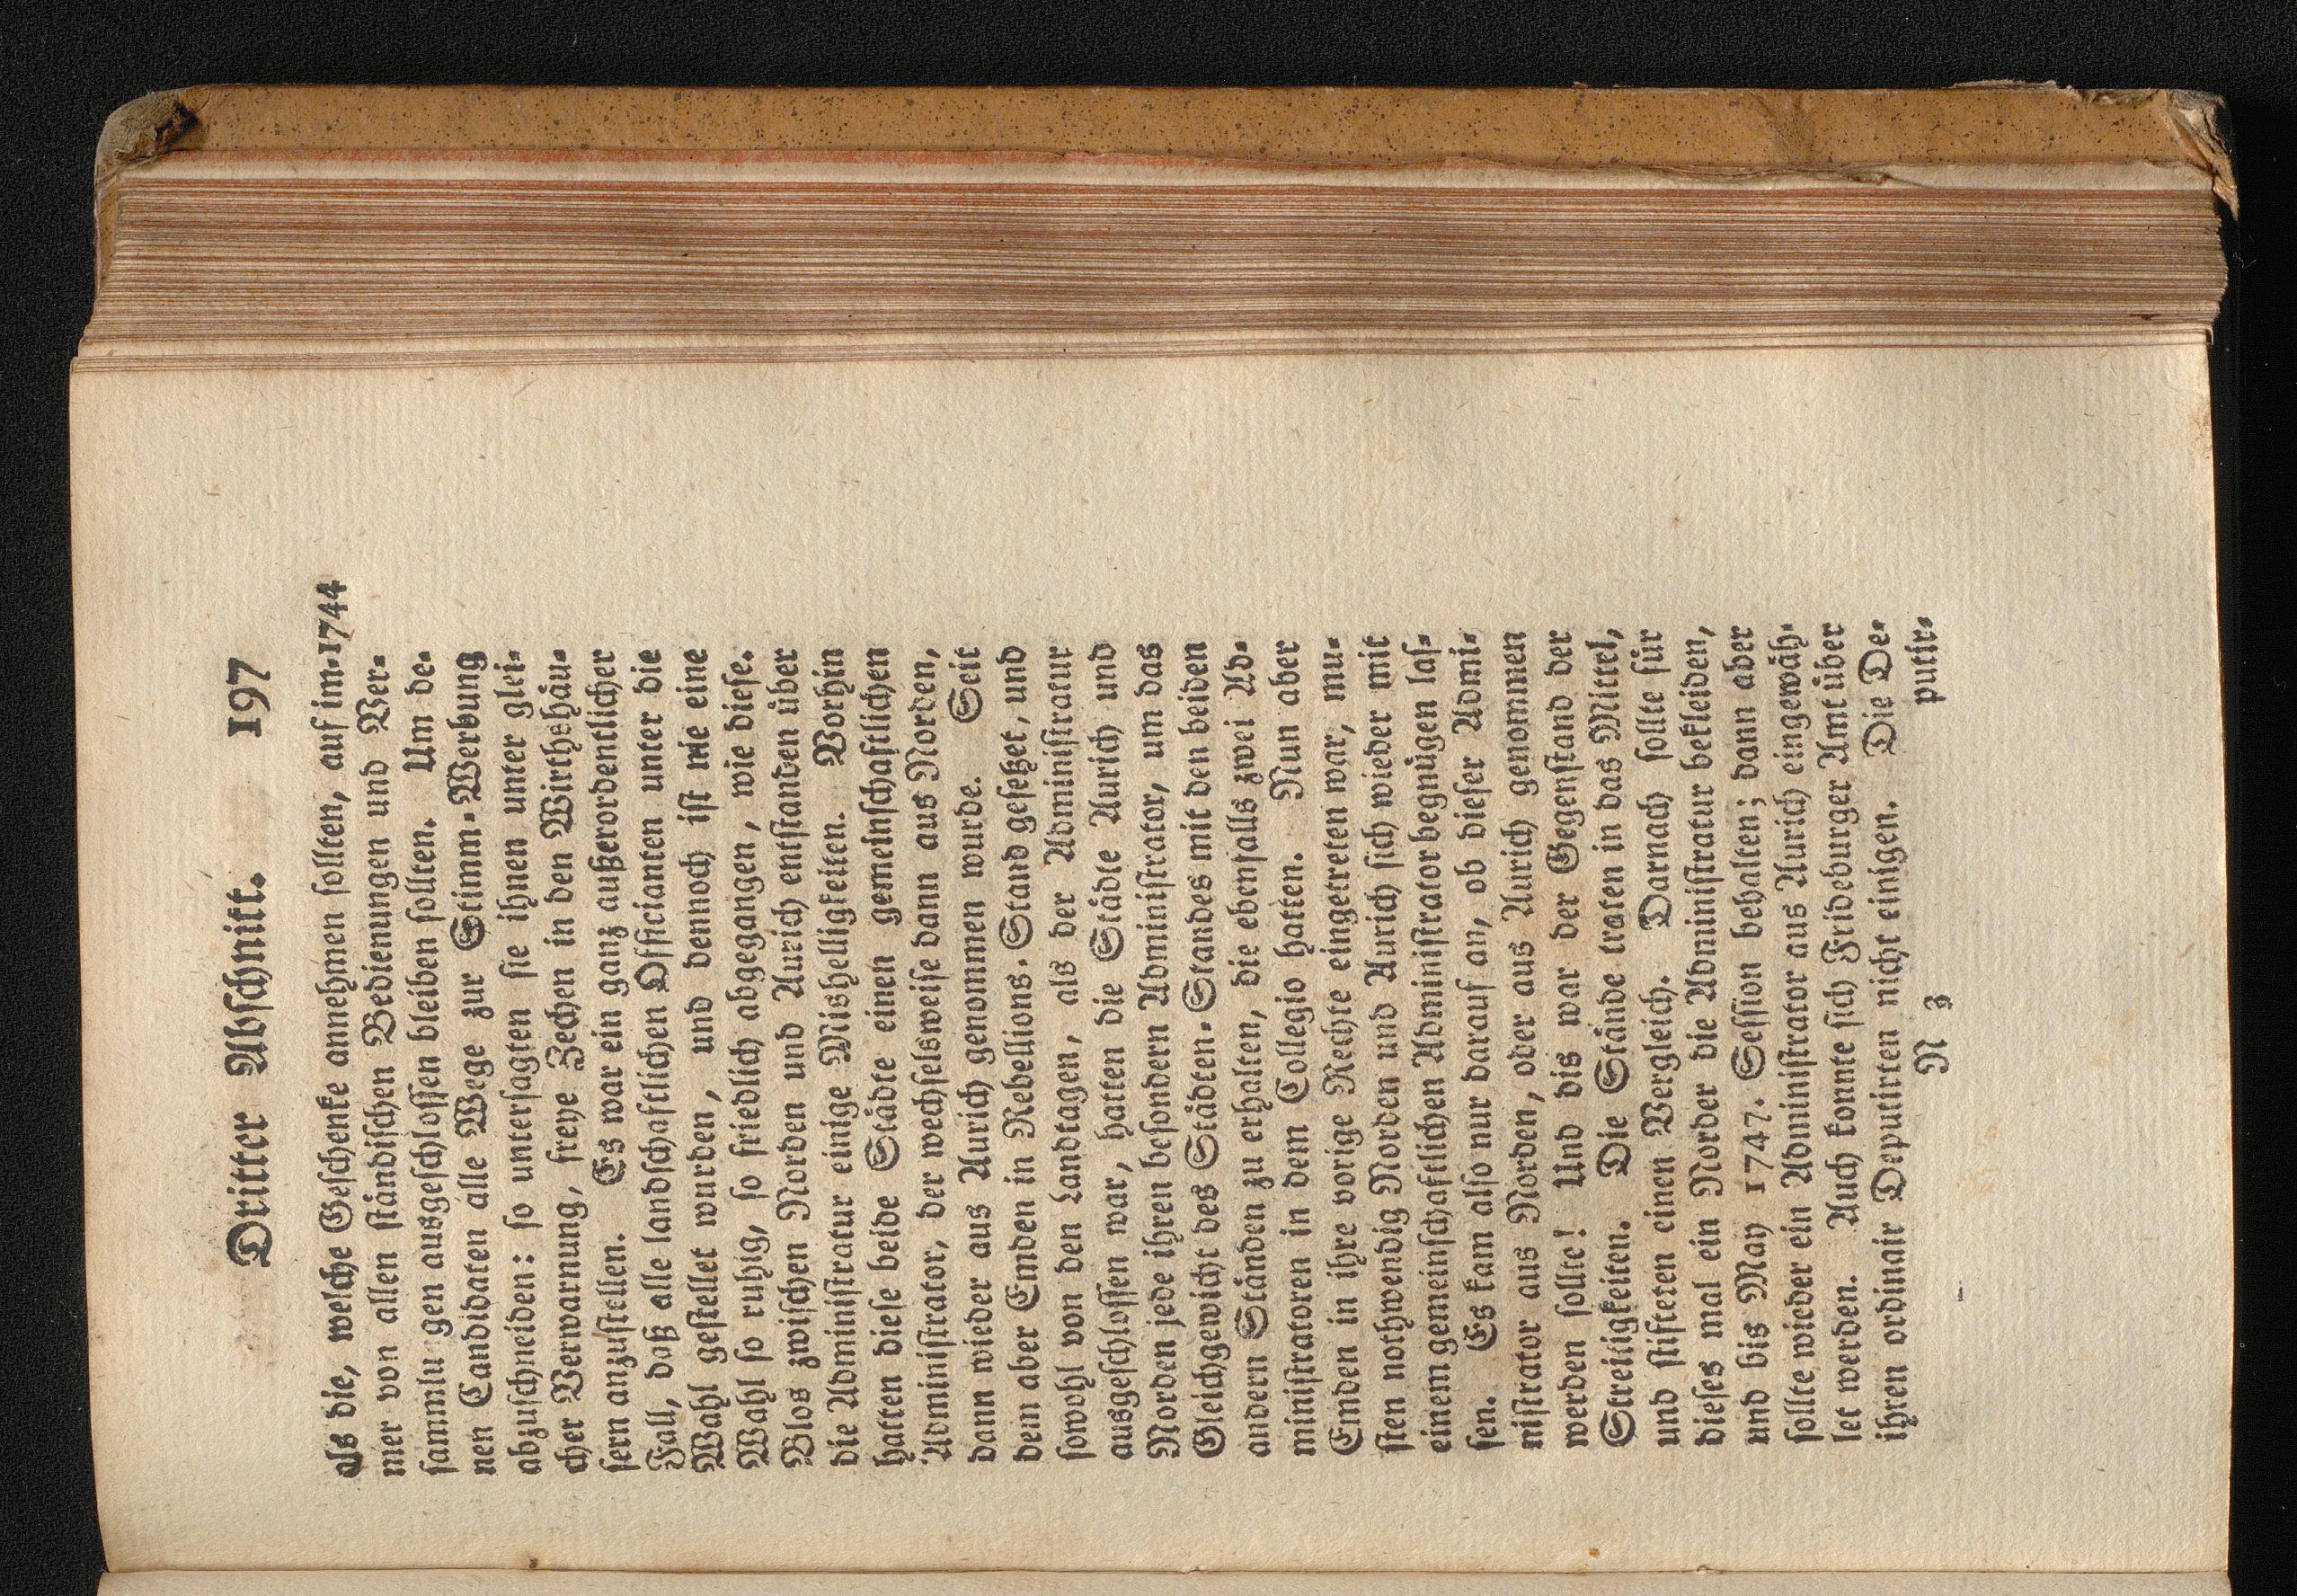 Dritter Abschnitt. 197
als die, welche Geschenke annehmen sollten, auf im- 1744
mer von allen ständischen Bedienungen und Ver-
sammlu gen ausgeschlossen bleiben sollten. Um de-
nen Candidaten alle Wege zur Stimm-Werbung
abzuschneiden: so untersagten sie ihnen unter glei-
cher Verwarnung, freye Zechen in den Wirthshäu-
sern anzustellen. Es war ein ganz außerordentlicher
Fall, daß alle landschaftlichen Officianten unter die
Wahl gestellet wurden, und dennoch ist nie eine
Wahl so ruhig, so friedlich abgegangen, wie diese.
Blos zwischen Norden und Aurich entstanden über
die Administratur einige Mishelligkeiten. Vorhin
hatten diese beide Städte einen gemeinschaftlichen
Administrator, der wechselsweise dann aus Norden,
dann wieder aus Aurich genommen wurde. Seit
dem aber Emden in Rebellions-Stand gesetzet, und
sowohl von den Landtagen, als der Administratur
ausgeschlossen war, hatten die Städte Aurich und
Norden jede ihren besondern Administrator, um das
Gleichgewicht des Städten-Standes mit den beiden
andern Ständen zu erhalten, die ebenfalls zwei Ad-
ministratoren in dem Collegio hatten. Nun aber
Emden in ihre vorige Rechte eingetreten war, mu-
sten nothwendig Norden und Aurich sich wieder mit
einem gemeinschaftlichen Administrator begnügen las-
sen. Es kam also nur darauf an, ob dieser Admi-
nistrator aus Norden, oder aus Aurich genommen
werden sollte! Und dis war der Gegenstand der
Streitigkeiten. Die Stände traten in das Mittel,
und stifteten einen Vergleich. Darnach sollte für
dieses mal ein Norder die Administratur bekleiden,
und bis May 1747. Session behalten; dann aber
sollte wieder ein Administrator aus Aurich eingewäh-
let werden. Auch konnte sich Frideburger Amt über
ihren ordinair Deputirten nicht einigen. Die De-
N 3 putir-